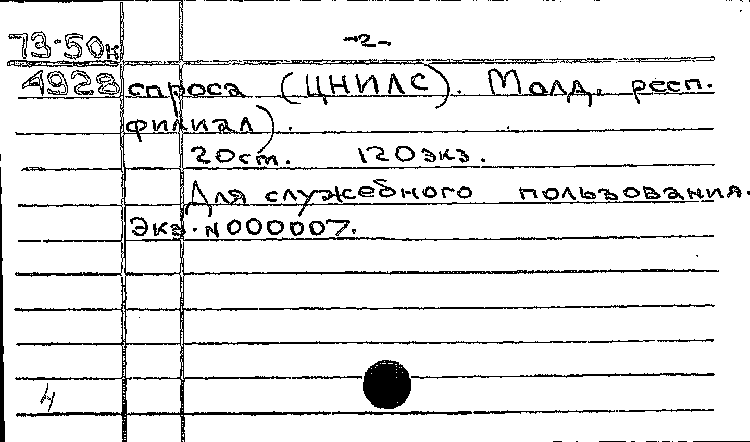 73-50к -2-
4928 спроса (ЦНИЛС). Молд. респ.
филиал).
20ст. 120экз.
Для служебного пользования.
Экз. N000007.
4